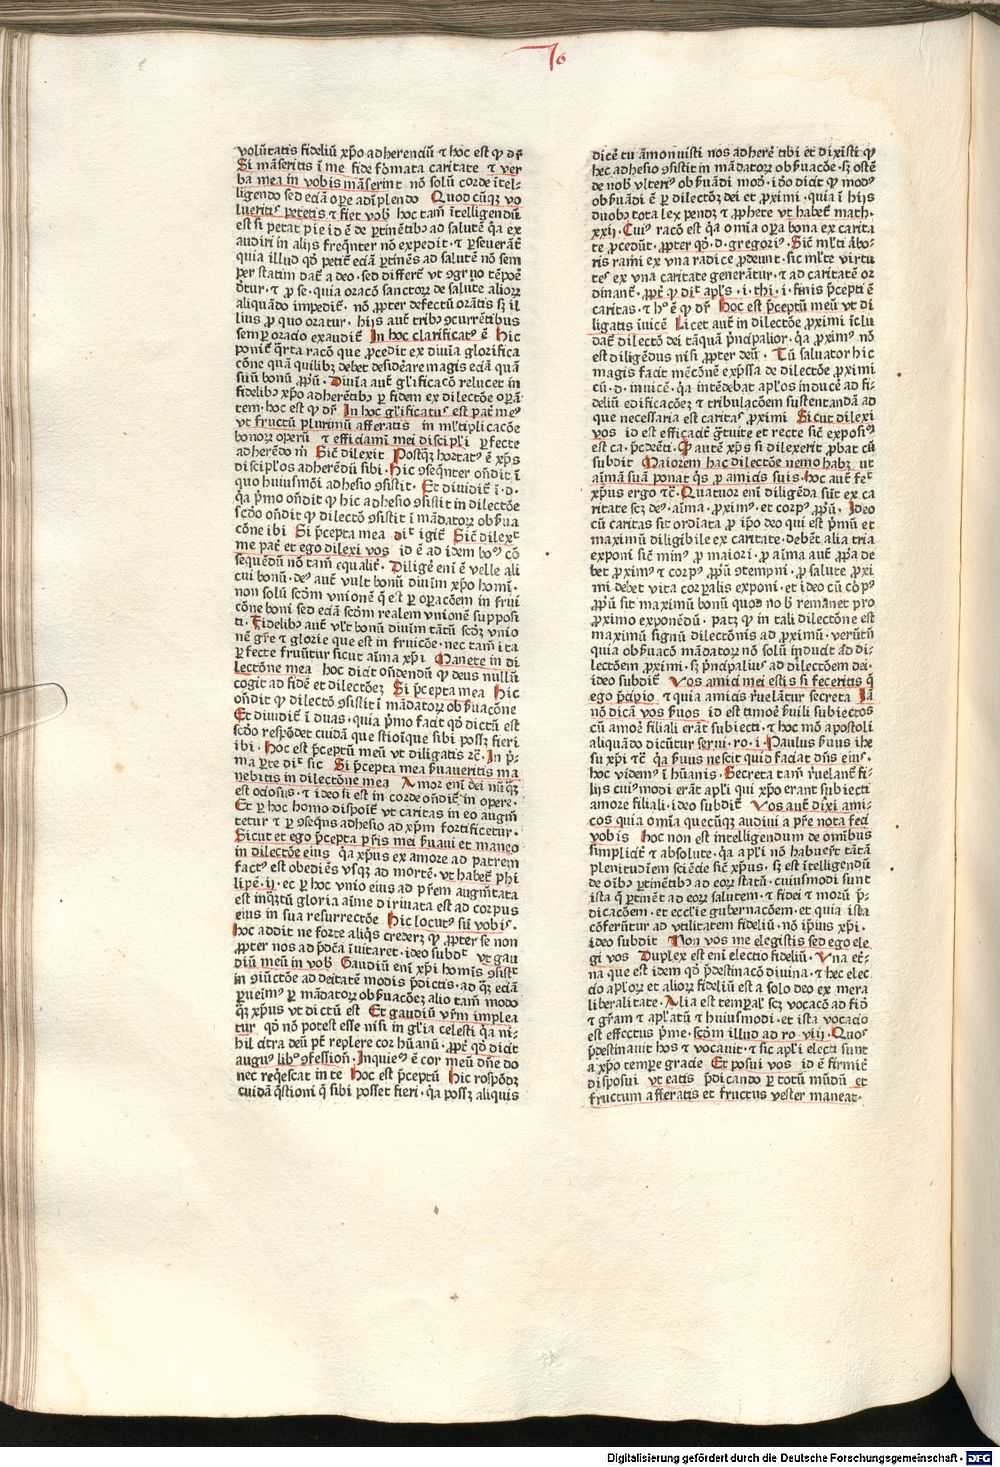 Jo
volūtatis fideliū xp̄o adherenciū ⁊ hoc est ꝙ dr̄
Si māseritis ī me fide formata caritate ⁊ ver
ba mea in vobis māserint nō solū corde ītel⸗
ligendo sed eciā oꝑe adīplendo Quod cūqꝫ vo
lueritis petetis ⁊ fiet vob̄ hoc tam̄ ītelligendū
est si petat pie id ē de ꝑtinētibꝰ ad salutē q̄a ex
audiri in alijs freqn̄ter nō expedit · ⁊ ꝑseuerāt̄
quia illud qd̄ petit̄ eciā ꝑtinēs ad salutē nō sem
per statim dat̄ a deo · sed differt̄ vt ꝯgruo tēpoē
det̄ur · ⁊ ꝓ se · quia oracō sanctoꝝ de salute alioꝝ
aliquādo impedit̄ · nō ꝓpter defectū orātis sꝫ il
lius ꝓ quo oratur · hijs aut̄ tribꝰ ꝯcurrētibus
semꝑ oracio exaudit̄ In hoc clarificatꝰ ē Hic
ponit̄ q̄rta racō que ꝓcedit ex diuīa glorifica
cōne quā quilibꝫ debet desideare magis eciā quā
suū bonū ꝓpū · Diuīa aut̄ gl̄ificacō relucet in
fidelibꝰ xp̄o adherētibꝰ ꝑ fidem ex dilectōe oꝑā
tem · hoc est ꝙ dr̄ In hoc gl̄ificatus est pat̄ meꝰ
vt fructū plurimū afferatis in ml̄tiplicacōe
bonoꝝ operū ⁊ efficiamī mei discipl̄i ꝑfecte
adherēdo m̄ Sic̄ dilexit Postqꝫ hortatꝰ ē xp̄s
discipl̄os adherēdū sibi · Hic ꝯseqn̄ter on̄dit ī
quo huiusmōi adhesio ꝯsistit · Et diuidit̄ ī · d ·
q̄a p̄mo on̄dit ꝙ hic adhesio ꝯsistit in dilectōe
scd̄o on̄dit ꝙ dilectō ꝯsistit ī mādatoꝝ obẜua
cōne ibi Si p̄cepta mea dīt igit̄ Sic̄ dilexit
me pat̄ et ego dilexi vos id ē ad idem bonū cō
sequēdū nō tam̄ equalit̄ · Diligē enī ē velle ali
cui bonū · deꝰ aut̄ vult bonū diuīm xp̄o homī ·
non solū scd̄m vnionē q̄ est ꝑ oꝑacōem in frui
cōne boni sed eciā scd̄m realem vnionē supposi
ti · Fidelibꝰ aut̄ vl̄t bonū diuīm tātū scd̄ꝫ vnio
nē gr̄e ⁊ glorie que est in fruicōe · nec tam̄ ita
ꝑfecte fruūtur sicut aīma xp̄i Manete in di
lectōne mea hoc dicit on̄dendū ꝙ deus nullū
cogit ad fidē et dilectōeꝫ Si p̄cepta mea Hic
on̄dit ꝙ dilectō ꝯsistit ī mādatoꝝ obẜuacōne
Et diuidit̄ ī duas · quia p̄mo facit qd̄ dictū est
scd̄o respōdet cuidā que stioīque sibi possꝫ fieri
ibi · Hoc est p̄ceptū meū vt diligatis ⁊c̄ · In p̄⸗
ma ꝑte dīt sic Si p̄cepta mea ẜuaueritis ma
nebitis in dilectōne mea Amor enī dei nūqꝫ
est ociosus · ⁊ ideo si est in corde on̄dit̄ in opere ·
Et ꝑ hoc homo dispoīt̄ vt caritas in eo augm̄
tetur ⁊ ꝑ ꝯseqūs adhesio ad xp̄m fortificetur ·
Sicut et ego p̄cepta p̄ris mei ẜuaui et maneo
in dilectōe eius q̄a xp̄us ex amore ad patrem
factꝰ est obediēs vsqꝫ ad mortē · vt habet̄ phi
lipē · ij · ec ꝑ hoc vnio eius ad p̄rem augm̄tata
est inqꝫtū gloria aīme diriuata est ad corpus
eius in sua resurrectōe Hic locutꝰ sū vobis ·
Hoc addit ne forte aliqs̄ crederꝫ ꝙ ꝓpter se non
ꝓpter nos ad p̄dcā īuitaret · ideo subdit vt gau
diū meū in vob̄ Gaudiū enī xp̄i homīs ꝯsistit
in ꝯiūctōe ad deitatē modis p̄dictis · ad qꝫ eciā
ꝑueimꝰ ꝑ mādatoꝝ obẜuacōeꝫ alio tam̄ modo
qꝫ xp̄us vt dictū est Et gaudiū vr̄m implea
tur qd̄ nō potest esse nisi in gl̄ia celesti q̄a ni⸗
hil citra deū pt̄ replere cor hūanū · ꝓpt̄ qd̄ dicit
augꝰ libꝰ ꝯfessionū · Inquietꝰ ē cor meū dn̄e do
nec reqescat in te Hoc est p̄ceptū Hic rospōdꝫ
cuidā qs̄tioni q̄ sibi posset fieri · q̄a possꝫ aliquis
dicē tu āmonuisti nos adherē tibi et dixisti ꝙ
hec adhesio ꝯsistit in mādatoꝝ obẜuacōe · sꝫ ostē
de nob̄ vlteriꝰ obẜuādi modū · ideo dicit ꝙ modꝰ
obẜuādi ē ꝑ dilectōeꝫ dei et ꝓximi · quia ī hijs
duobꝰ tota lex pendꝫ ⁊ ꝓphete vt habet̄ math ·
xxij · Cuiꝰ racō est q̄a omīa oꝑa bona ex carita
te ꝓcedūt · ꝓpter qd̄ · d · gregoriꝰ · Sic̄ ml̄ti arbo⸗
ris rami ex vna radice ꝓdeunt · sic ml̄te virtu
tes ex vna caritate generātur · ⁊ ad caritatē or
dinant̄ · ꝓpt̄ ꝙ dīt apl̄s · i · thi · i · finis p̄cepti ē
caritas · ⁊ hoc ē ꝙ dr̄ Hoc est p̄ceptū meū vt di
ligatis īuicē Licet aut̄ in dilectōe ꝓximi īclu
dat̄ dilectō dei tāquā p̄ncipalior · q̄a ꝓximꝰ nō
est diligēdus nisi ꝓpter deū · Tn̄ saluator hic
magis facit mēcōnē exp̄ssā de dilectōe ꝓximi
cū · d · inuicē · q̄a intēdebat apl̄os inducē ad fi⸗
deliū edificacōeꝫ ⁊ tribulacōem sustentandā ad
que necessaria est caritas ꝓximi Sicut dilexi
vos id est efficacit̄ gratuite et recte sic̄ expositū
est ca · p̄cedēti · Qn̄ autē xp̄s sī dilexerit ꝓbat cū
subdit Maiorem hac dilectōe nemo habꝫ vt
aīmā suā ponat qs̄ ꝓ amicis suis · hoc aut̄ fecit
xp̄us ergo ⁊c̄ · Quatuor enī diligēda sūt ex ca
ritate scꝫ deꝰ · aīma · ꝓximꝰ · et corpꝰ ꝓpū · Ideo
cū caritas sit ordīata ꝓ ip̄o deo qui est p̄mū et
maximū diligibile ex caritate · debet̄ alia tria
exponi sic̄ minꝰ ꝓ maiori · ꝓ aīma aut̄ ꝓp̄a de
bet ꝓximꝰ ⁊ corpꝰ ꝓpū ꝯtempni · ꝓ salute ꝓxi
mi debet vita corꝑalis exponi · et ideo cū corpꝰ
ꝓpū sit maximū bonū quod nob̄ remanet pro
ꝓximo exponēdū · patꝫ ꝙ in tali dilectōne est
maximū signū dilectōnis ad ꝓximū · verūtū
quia obẜuacō mādatoꝝ nō solū īnducit ad di⸗
lectōem ꝓximi · sꝫ p̄ncipaliꝰ ad dilectōem dei ·
ideo subdit̄ Vos amici mei estis si feceritis q̄
ego p̄cipio ⁊ quia amicis reuelātur secreta Iā
nō dicā vos ẜuos id est timore ẜuili subiectos
cū amore filiali erāt subiecti · ⁊ hoc mō apostoli
aliquādo dicūtur serui · ro · i · Paulus ẜuus ihe
su xp̄i ⁊c̄ q̄a ẜuus nescit quid faciat dn̄s eius ·
hoc videmꝰ ī hūanis · Secreta tam̄ reuelant̄ fi⸗
lijs cuiꝰmodi erāt apl̄i qui xp̄o erant subiecti
amore filiali · ideo subdit̄ Vos aut̄ dixi ami⸗
cos quia omīa quecūqꝫ audiui a p̄re nota feci
vobis hoc non est intelligendum de omībus
simplicit̄ ⁊ absolute · q̄a apl̄i nō habuerūt tātā
plenitudiem scīēcie sic̄ xp̄us · sꝫ est ītelligendū
de oībꝰ ꝑtinētibꝰ ad eoꝝ statū · cuiusmodi sunt
ista q̄ ꝑtinēt ad eoꝝ salutem · ⁊ fidei ⁊ morū p̄⸗
dicacōem · et eccl̄ie gubernacōem · et quia ista
cōferūtur ad vtilitatem fideliū · nō ip̄ius xp̄i ·
ideo subdit Non vos me elegistis sed ego ele
gi vos Duplex est enī electio fideliū · Vna eter⸗
na que est idem qd̄ p̄destinacō diuina · ⁊ hec elec
cio apl̄oꝝ et alioꝝ fideliū est a solo deo ex mera
liberalitate · Alia est temꝑal̄ scꝫ vocacō ad fidē
⁊ gr̄am ⁊ apl̄atū ⁊ huiusmodi · et ista vocacio
est effectus p̄me · scd̄m illud ad ro · viij · Quos
p̄destinauit hos ⁊ vocauit · ⁊ sic apl̄i electi sunt
a xp̄o tempore gracie Et posui vos id ē firmit̄
disposui vt eatis p̄dicando ꝑ totū mūdū et
fructum afferatis et fructus vester maneat ·
Digitalisierung gefördert durch die Deutsche Forschungsgemeinschaft - DFG